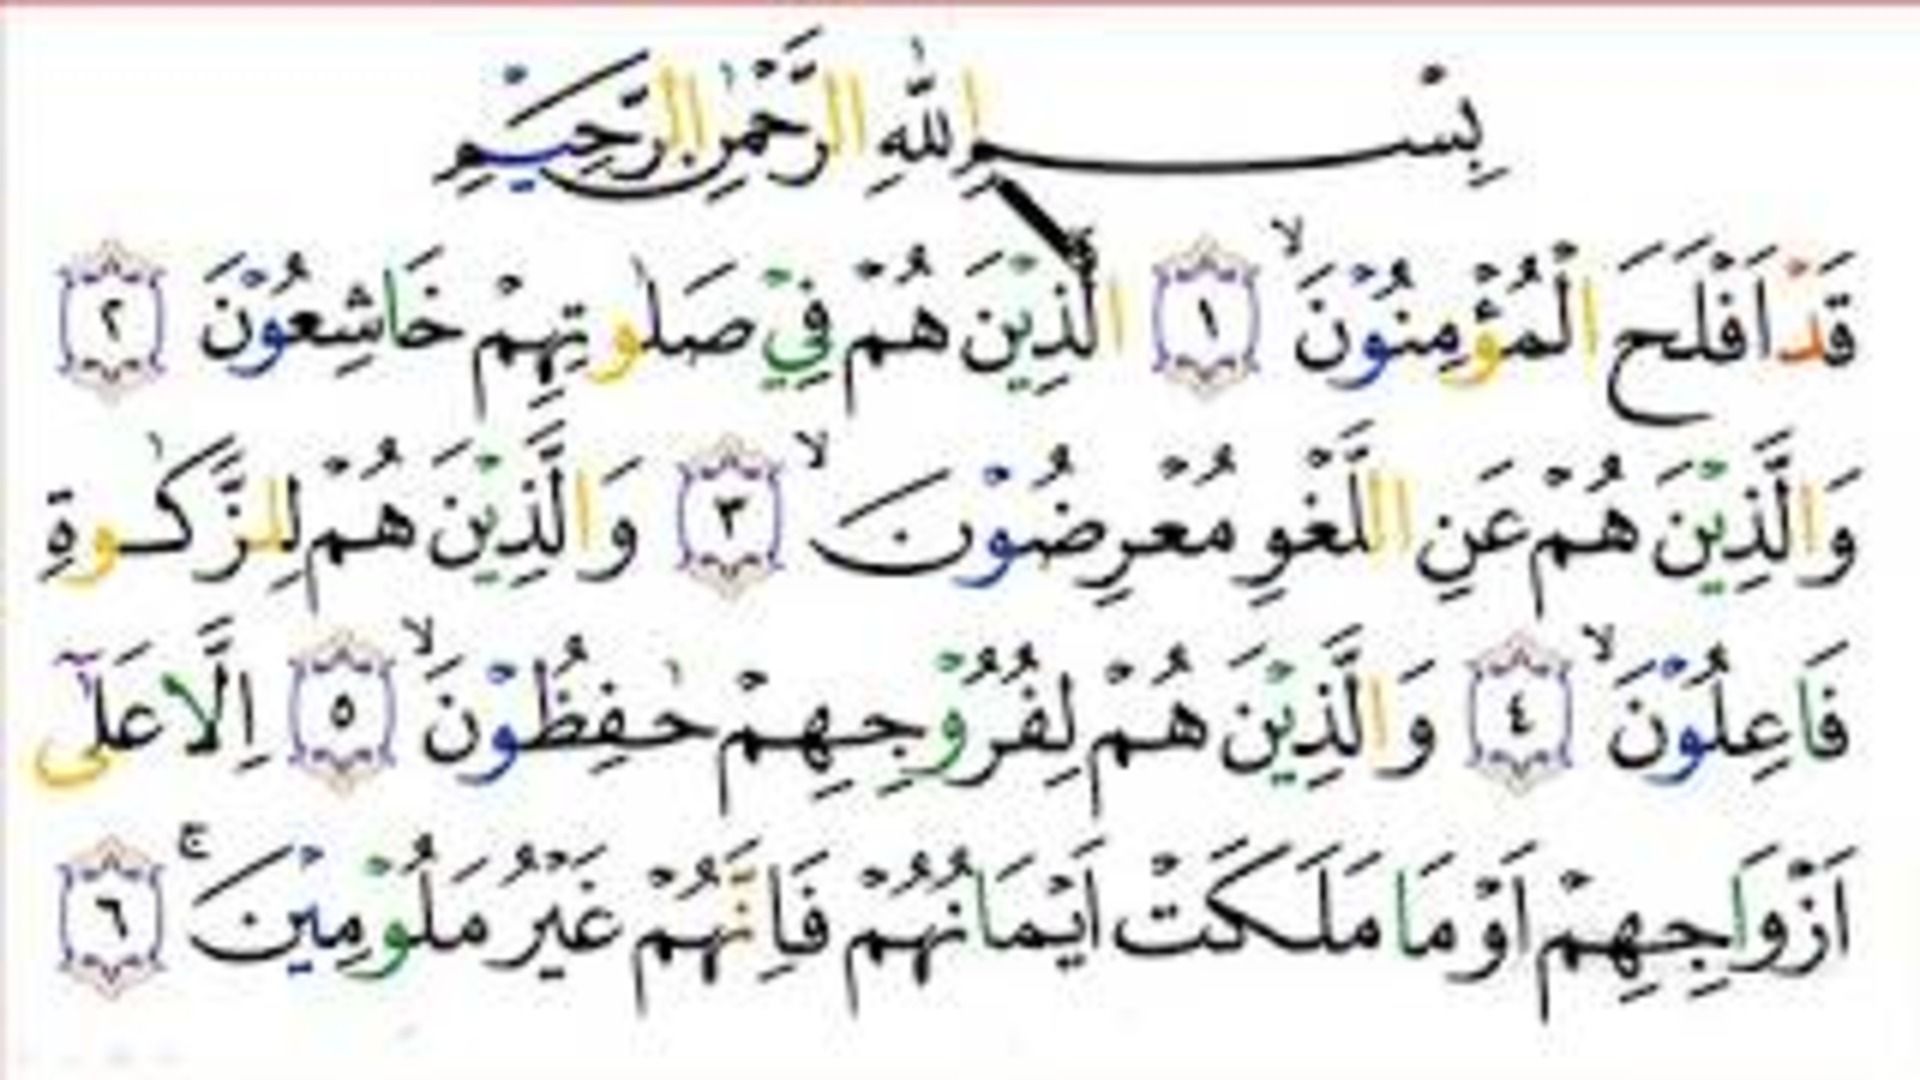 بِسْـــــمِ اللّٰهِ الرَّحْمٰنِ الرَّحِيْمِ
قَدْ اَفْلَحَ الْمُؤْمِنُوْنَۙ ١ الَّذِيْنَ هُمْ فِيْ صَلٰوتِهِمْ خَاشِعُوْنَ ٢
وَالَّذِيْنَ هُمْ عَنِ اللَّغْوِ مُعْرِضُوْنَۙ ٣ وَالَّذِيْنَ هُمْ لِلزَّكٰوةِ
فَاعِلُوْنَۙ ٤ وَالَّذِيْنَ هُمْ لِفُرُوْجِهِمْ حٰفِظُوْنَۙ ٥ اِلَّا عَلٰٓى
اَزْوَاجِهِمْ اَوْ مَا مَلَكَتْ اَيْمَانُهُمْ فَاِنَّهُمْ غَيْرُ مَلُوْمِيْنَۚ ٦